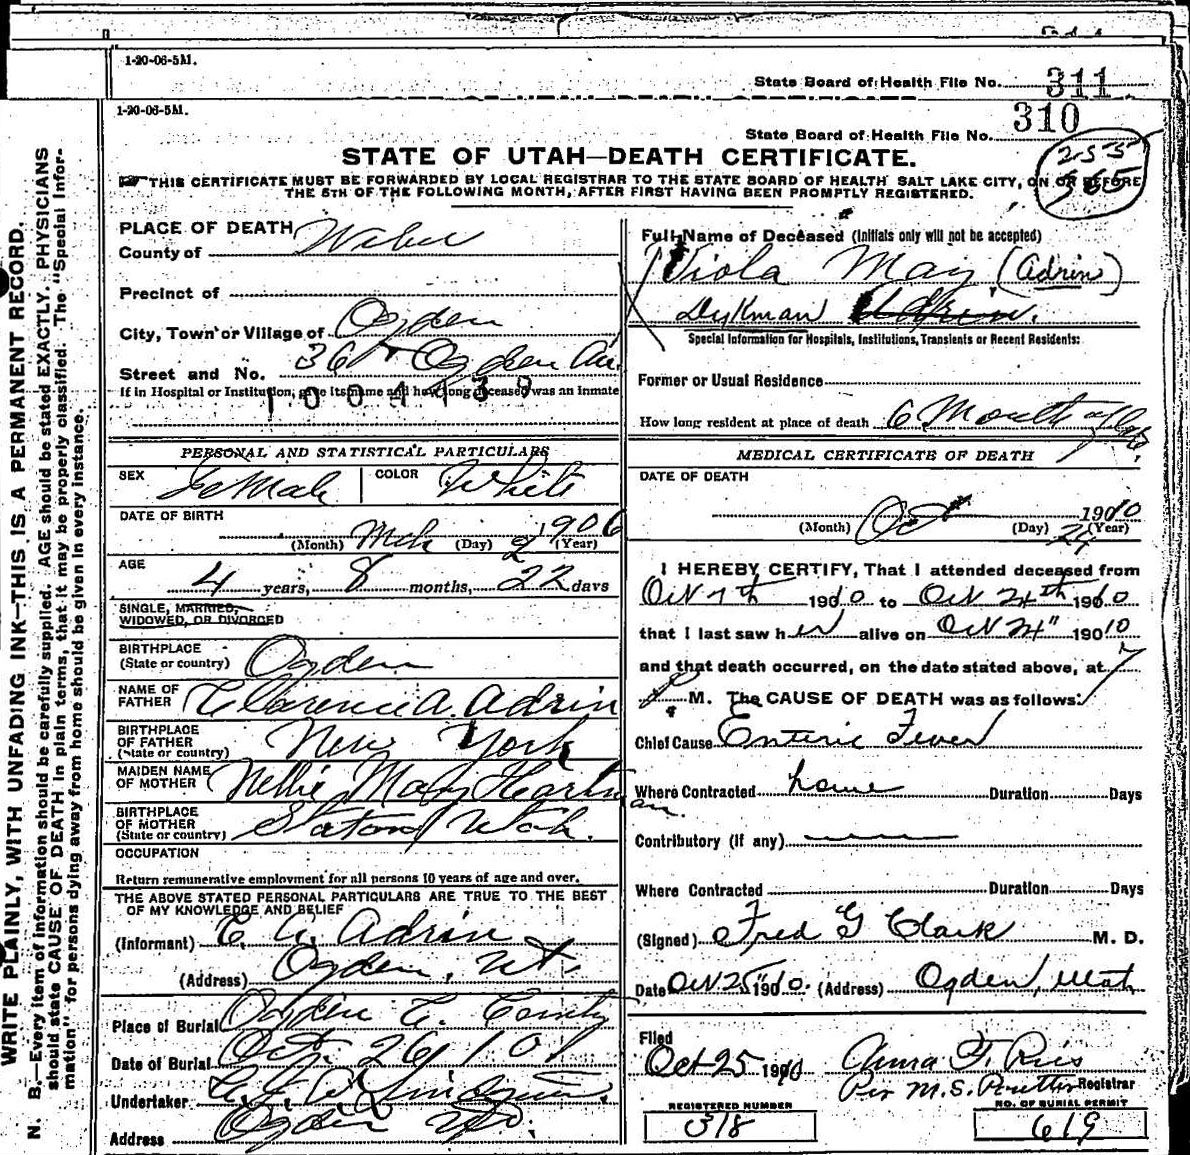 1-20-06-5M.
State Board of Health File No. 311
1-20-06-5M.
State Board of Health File No. 310
STATE OF UTAH—DEATH CERTIFICATE.
255
565
THIS CERTIFICATE MUST BE FORWARDED BY LOCAL REGISTRAR TO THE STATE BOARD OF HEALTH SALT LAKE CITY, ON OR BEFORE
THE 5TH OF THE FOLLOWING MONTH, AFTER FIRST HAVING BEEN PROMPTLY REGISTERED.
WRITE PLAINLY, WITH UNFADING INK—THIS IS A PERMANENT RECORD.
N. B.—Every item of information should be carefully supplied. AGE should be stated EXACTLY. PHYSICIANS
should state CAUSE OF DEATH in plain terms, that it may be properly classified. The "Special Infor-
mation" for persons dying away from home should be given in every instance.
PLACE OF DEATH
County of Weber
Precinct of
City, Town or Village of Ogden
Street and No. Ogden Av.
If in Hospital or Institution, give its name and how long deceased was an inmate
1004139
PERSONAL AND STATISTICAL PARTICULARS
SEX Female COLOR White
DATE OF BIRTH
(Month) Mch (Day) 2 1906 (Year)
AGE
4 years, 8 months, 22 days
SINGLE, MARRIED,
WIDOWED, OR DIVORCED
BIRTHPLACE
(State or country) Ogden
NAME OF
FATHER Clarence A. Adrin
BIRTHPLACE
OF FATHER
(State or country) New York
MAIDEN NAME
OF MOTHER Nellie May Hartman.
BIRTHPLACE
OF MOTHER
(State or country) Utah.
OCCUPATION
Return remunerative employment for all persons 10 years of age and over.
THE ABOVE STATED PERSONAL PARTICULARS ARE TRUE TO THE BEST
OF MY KNOWLEDGE AND BELIEF
(Informant) C. A. Adrin
(Address) Ogden, Ut.
Place of Burial Ogden C.
Date of Burial Oct. 26, 10
Undertaker
Address Ogden
Full Name of Deceased (Initials only will not be accepted)
Viola May (Adrin)
Dykman Adrin.
Special Information for Hospitals, Institutions, Transients or Recent Residents:
Former or Usual Residence
How long resident at place of death 6 Months
MEDICAL CERTIFICATE OF DEATH
DATE OF DEATH
1910
(Month) Oct (Day) 24 (Year)
I HEREBY CERTIFY, That I attended deceased from
Oct 7th 1910 to Oct 24th 1910
that I last saw her alive on Oct 24" 1910
and that death occurred, on the date stated above, at 7
P M. The CAUSE OF DEATH was as follows:
Chief Cause Enteric Fever
Where Contracted home Duration Days
Contributory (if any)
Where Contracted Duration Days
(Signed) Fred G Clark M. D.
Date Oct 25" 1910. (Address) Ogden, Utah
Filed
Oct 25 1910 Anna F. Ries
Per M.S. Registrar
REGISTERED NUMBER
318
NO. OF BURIAL PERMIT
619